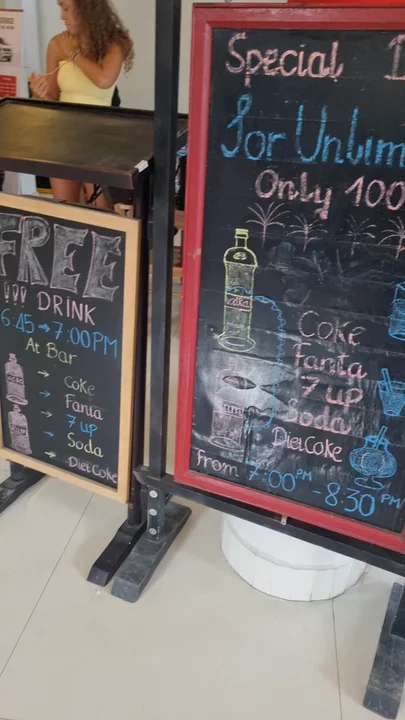 FREE
!!! DRINK
6:45 → 7:00PM
At Bar
→ Coke
→ Fanta
→ 7 up
→ Soda
→ Diet Coke
Special D
For Unlim
Only 100
Vodka
Coke
Fanta
7 up
Soda
Diet Coke
From 7:00PM - 8:30PM